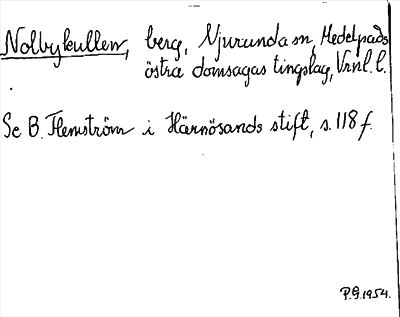 Nolbykullen, berg, Njurunda sn, Medelpads
östra domsagas tingslag, Vrnl. l.
Se B. Flemström i Härnösands stift, s. 118 f.
P.G. 1954.